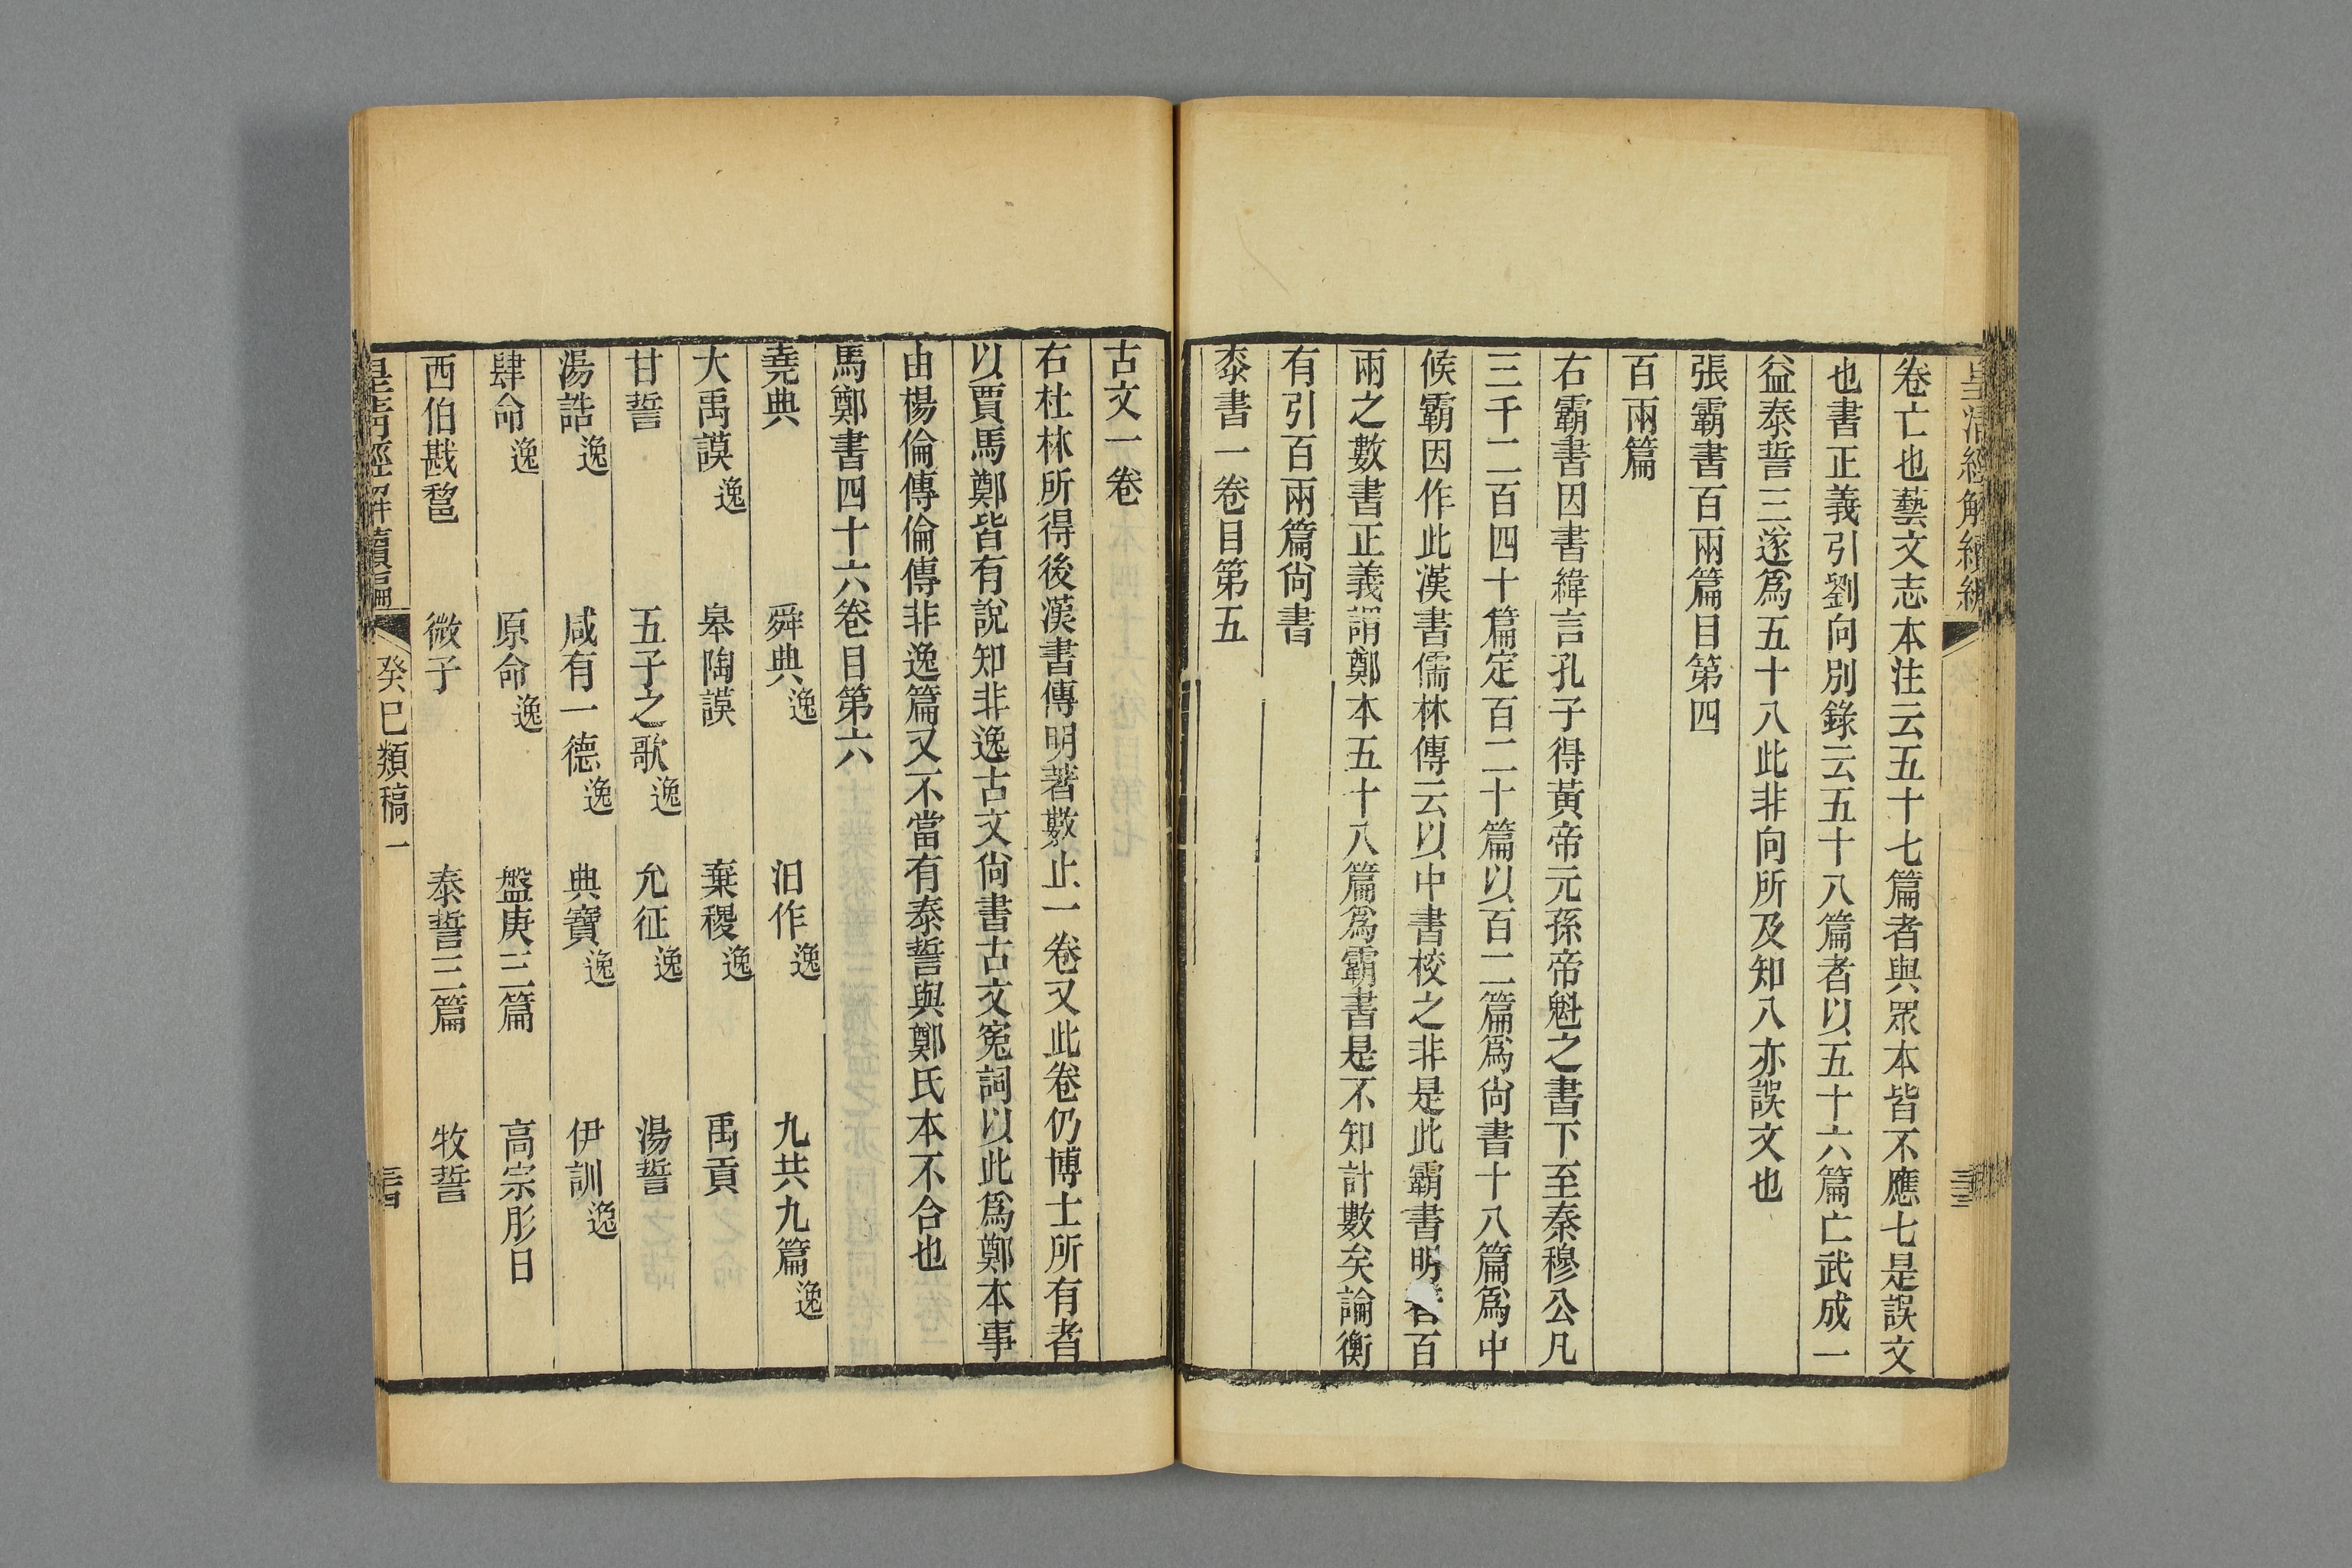 皇清經解續編
卷亡也藝文志本注云五十七篇者與眾本皆不應七是誤文
也書正義引劉向別錄云五十八篇者以五十六篇亡武成一
益泰誓三遂爲五十八此非向所及知八亦誤文也
張霸書百兩篇目第四
百兩篇
右霸書因書緯言孔子得黃帝元孫帝魁之書下至秦穆公凡
三千二百四十篇定百二十篇以百二篇爲尙書十八篇爲中
候霸因作此漢書儒林傳云以中書校之非是此霸書明著百
兩之數書正義謂鄭本五十八篇爲霸書是不知計數矣論衡
有引百兩篇尙書
桼書一卷目第五
古文一卷
右杜林所得後漢書傳明著數止一卷又此卷仍博士所有者
以賈馬鄭皆有說知非逸古文尙書古文寃詞以此爲鄭本事
由楊倫傳倫傳非逸篇又不當有泰誓與鄭氏本不合也
馬鄭書四十六卷目第六
堯典 舜典逸 汨作逸 九共九篇逸
大禹謨逸 皋陶謨 棄稷逸 禹貢
甘誓 五子之歌逸 允征逸 湯誓
湯誥逸 咸有一德逸 典寶逸 伊訓逸
肆命逸 原命逸 盤庚三篇 高宗肜日
西伯戡黎 微子 泰誓三篇 牧誓
皇淸經解續編 癸巳類稿一 三四